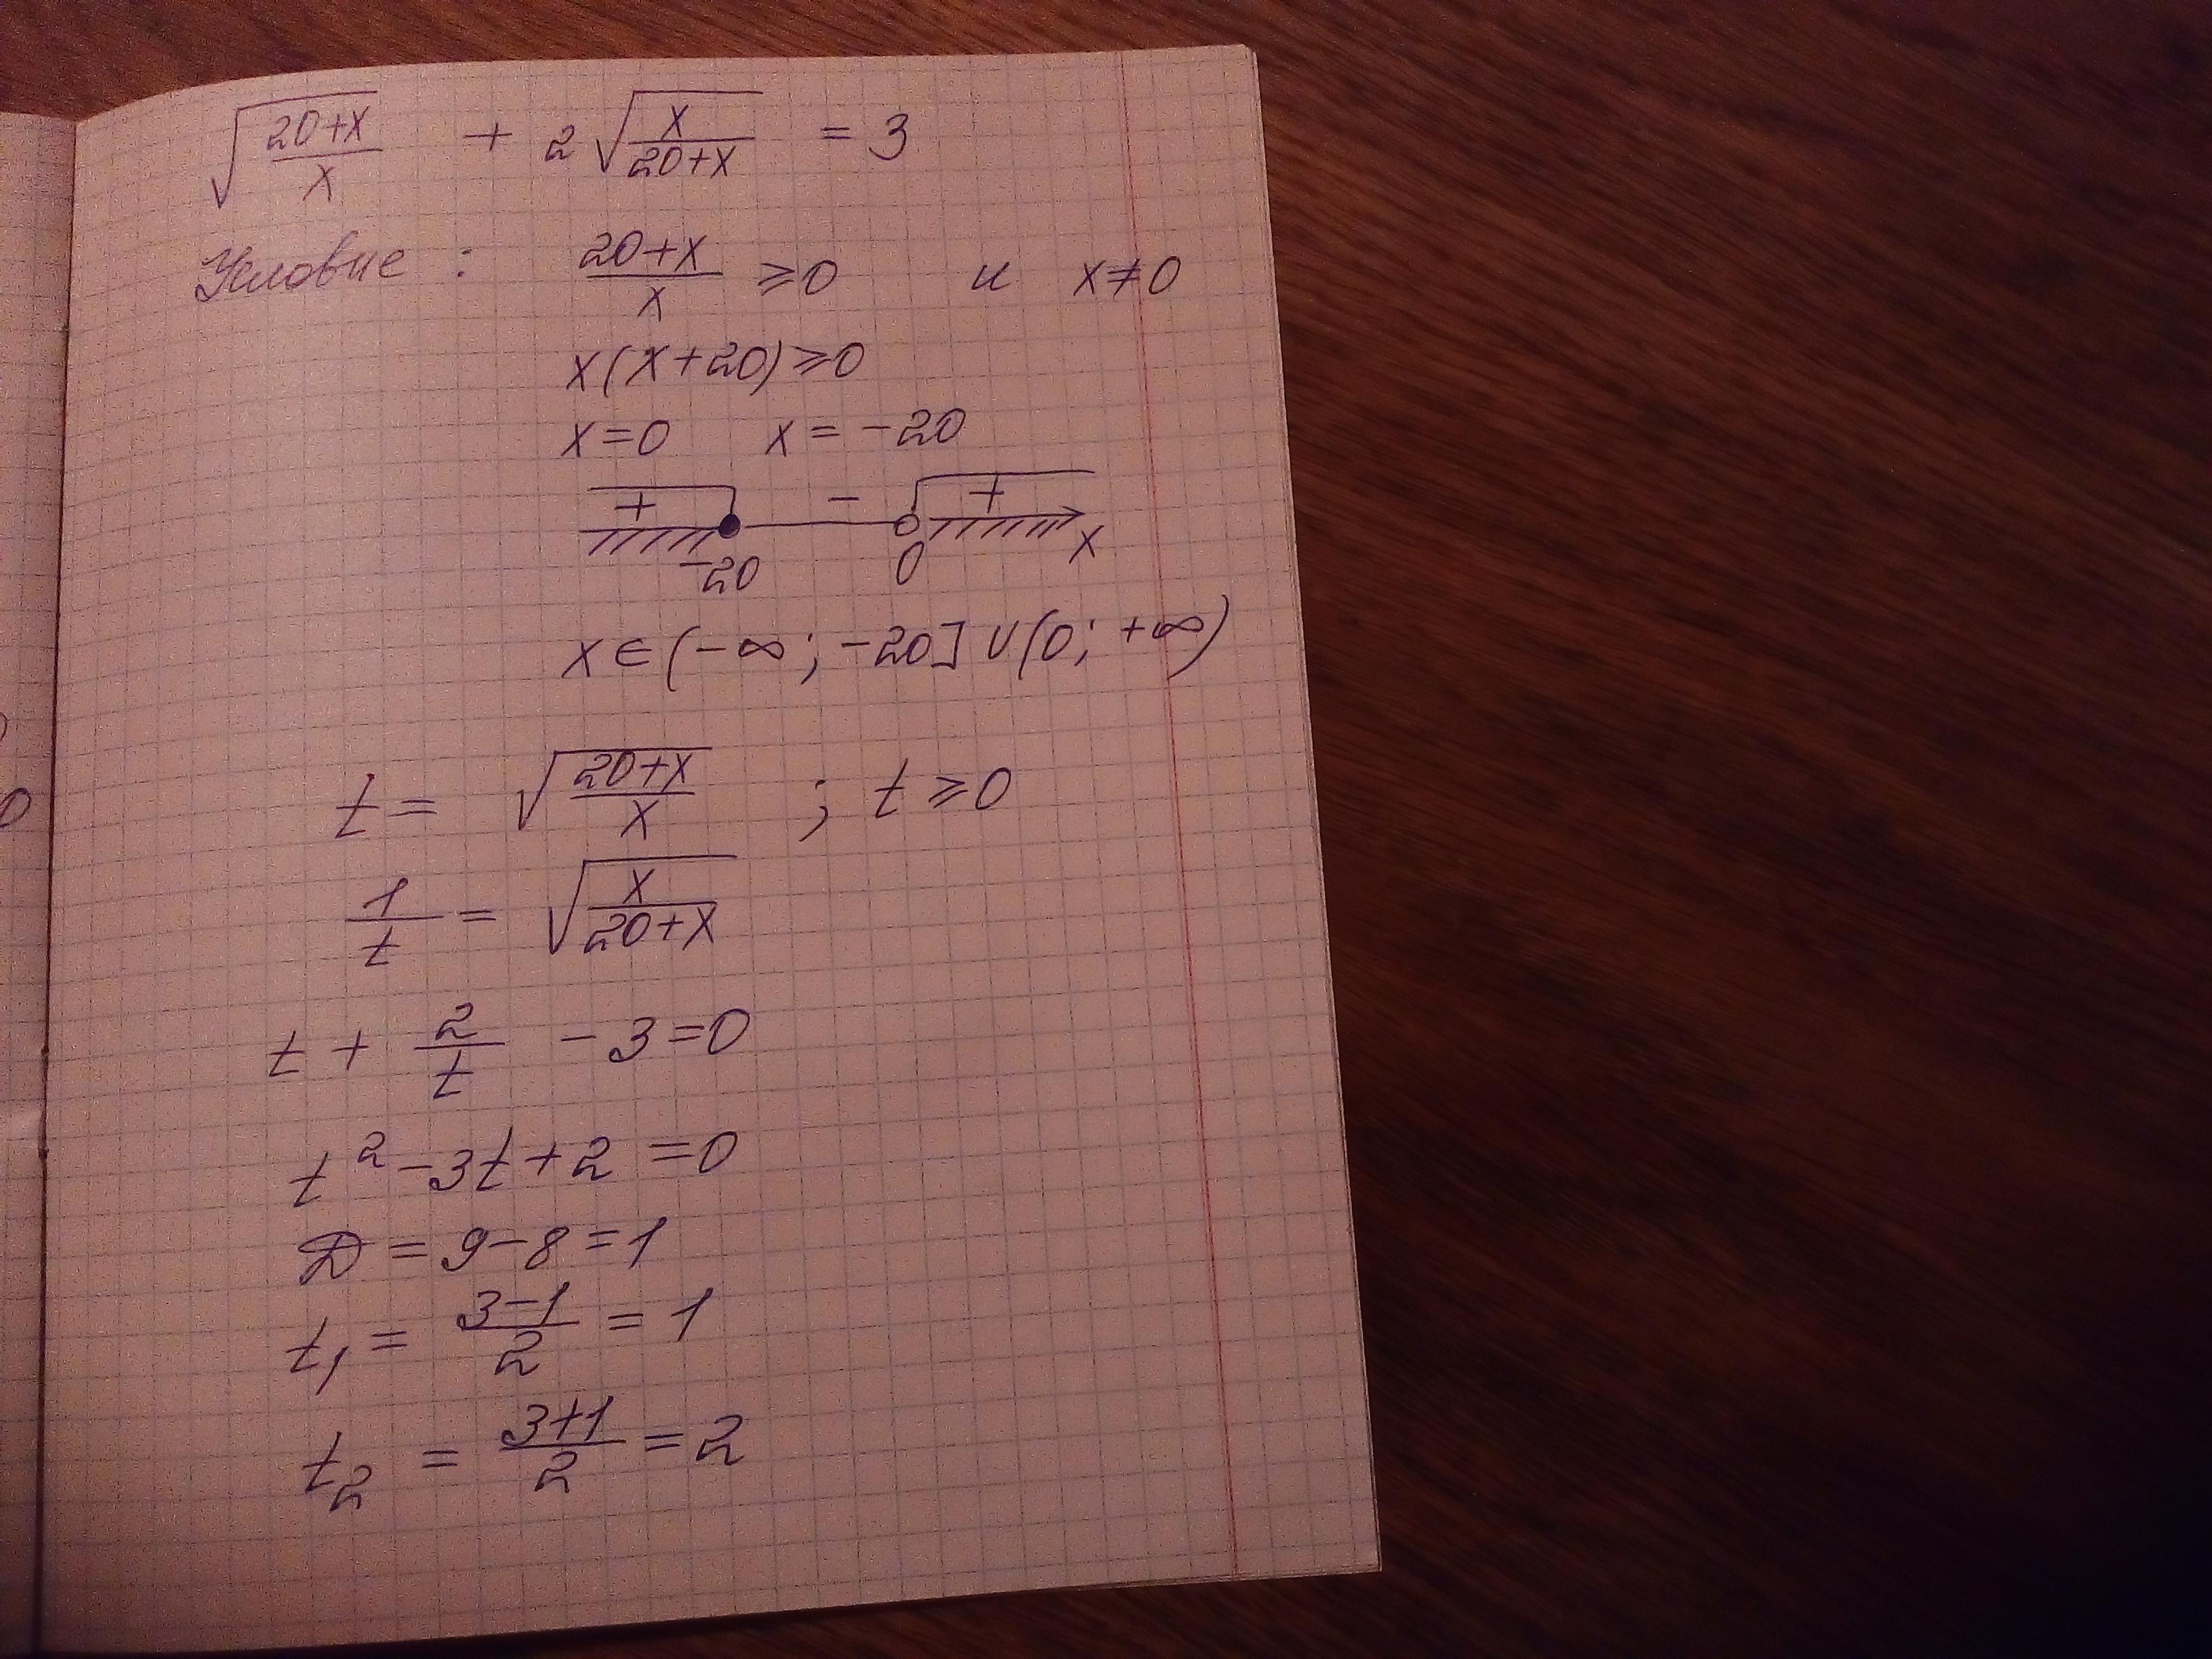 √((20+x)/x) + 2√(x/(20+x)) = 3
Условие : (20+x)/x ≥0 и x≠0
x(x+20)≥0
x=0 x=-20
+ - +
-20 0 x
x∈(-∞; -20]∪(0; +∞)
t= √((20+x)/x) ; t≥0
1/t = √(x/(20+x))
t + 2/t -3=0
t²-3t+2=0
D=9-8=1
t₁= (3-1)/2 = 1
t₂ = (3+1)/2 = 2